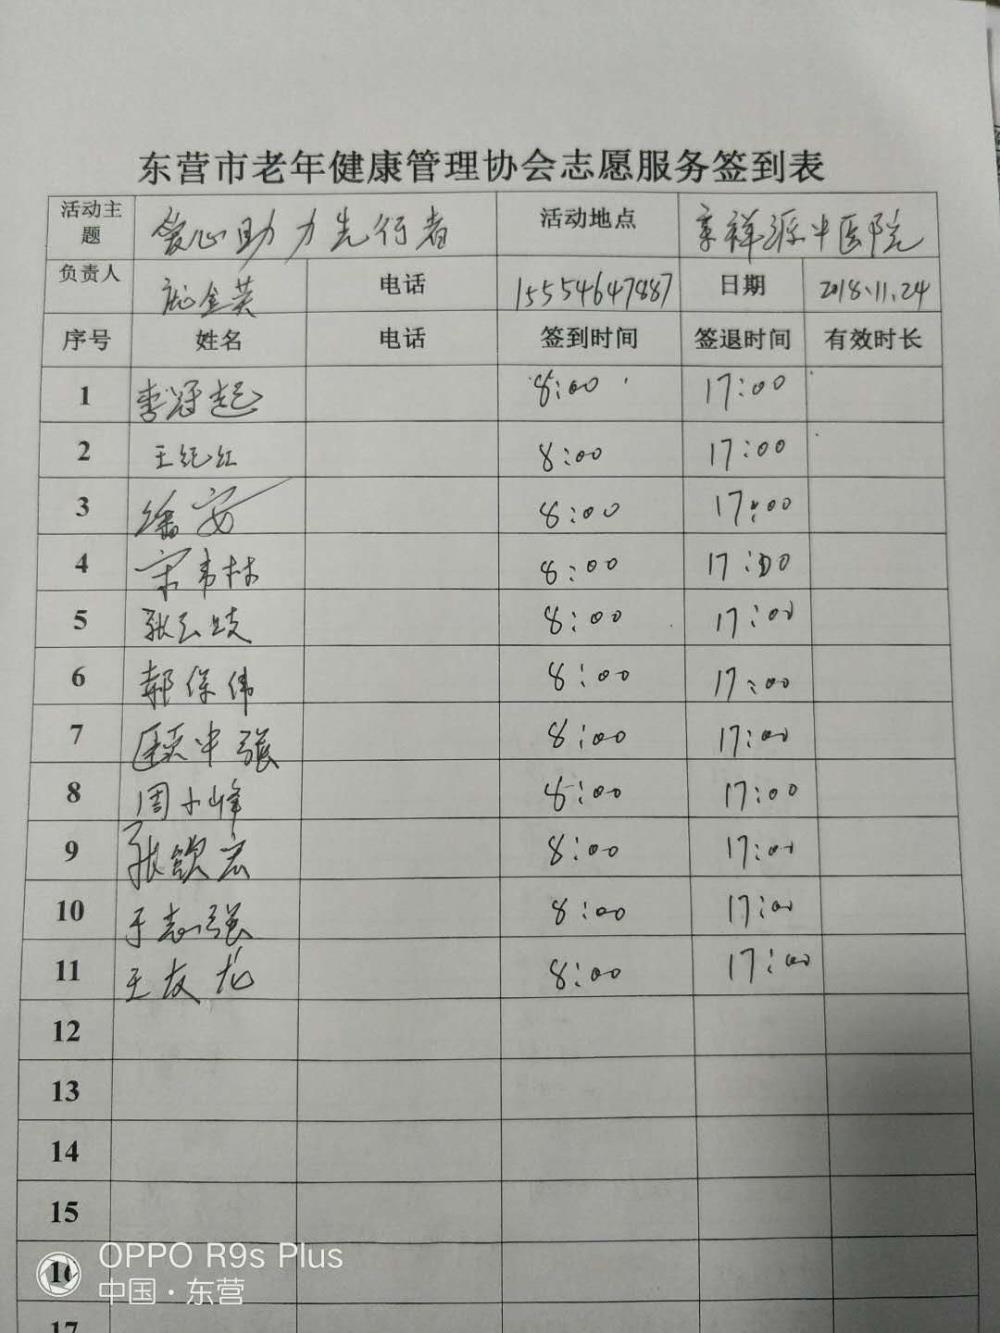 东营市老年健康管理协会志愿服务签到表
活动主题 爱心助力先行者 活动地点 祥源中医院
负责人 金英 电话 15554647887 日期 2018.11.24
序号 姓名 电话 签到时间 签退时间 有效时长
1 李冠起 8:00 17:00
2 王纪红 8:00 17:00
3 徐安 8:00 17:00
4 宋韦林 8:00 17:00
5 张云岐 8:00 17:00
6 郝保伟 8:00 17:00
7 8:00 17:00
8 周小峰 8:00 17:00
9 张钦宏 8:00 17:00
10 于志强 8:00 17:00
11 王友龙 8:00 17:00
12
13
14
15
16
17
OPPO R9s Plus
中国·东营